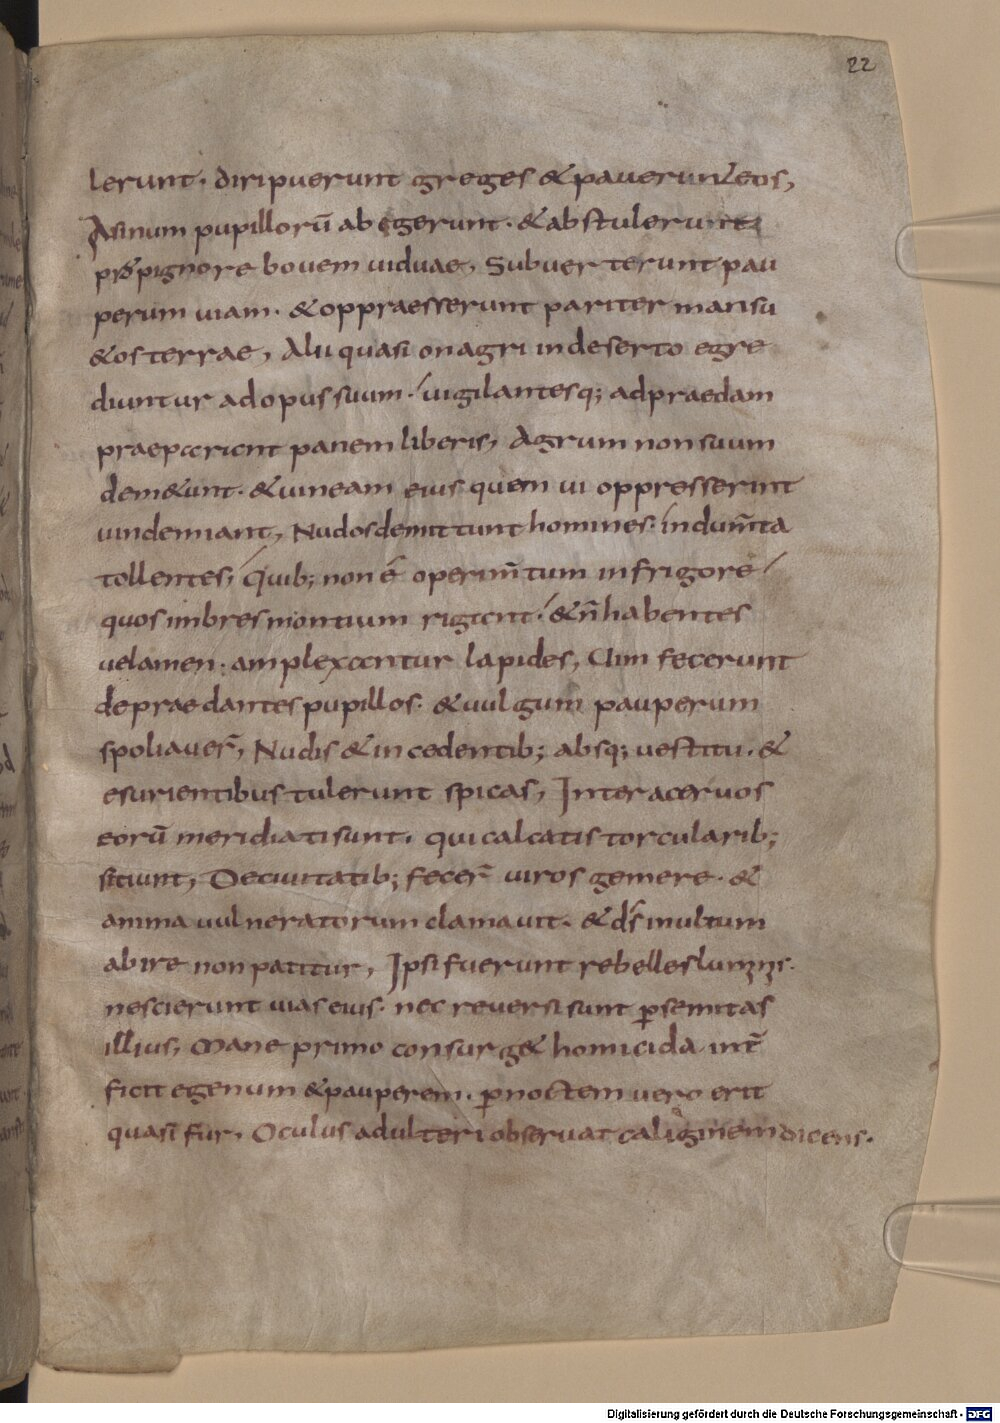 22
lerunt. diripuerunt greges & pauerunt eos,
Asinum pupillorū abegerunt. & abstulerunt
pro pignore bouem uiduae, Subuerterunt pau
perum uiam. & oppraesserunt pariter mansu
&os terrae, Alii quasi onagri indeserto egre
diuntur adopus suum. uigilantesq; adpraedam
praeparient panem liberis, Agrum non suum
dem&unt. & uineam eius quem ui oppresserint
uindemiant, Nudos demittunt homines. indum̄ta
tollentes, Quib; non ē operim̄tum infrigore
quos imbres montium rigient. & n̄ habentes
uelamen. amplexantur lapides, Uim fecerunt
depraedantes pupillos. & uulgum pauperum
spoliauer̄, Nudis & incedentib; absq; uestitu. &
esurientibus tulerunt spicas, Inter aceruos
eorū meridiati sunt. qui calcatis torcularib;
sitiunt, Deciuitatib; fecer̄ uiros gemere. &
anima uulneratorum clamauit. & ds̄ inultum
abire non patitur, Ipsi fuerunt rebelles
nescierunt uias eius. nec reuersi sunt ꝑsemitas
illius, Mane primo consurg& homicida int̄
ficit egenum & pauperem. ꝑnoctem uero erit
quasi fur, Oculus adulteri obseruat caliginem dicens.
Digitalisierung gefördert durch die Deutsche Forschungsgemeinschaft - DFG